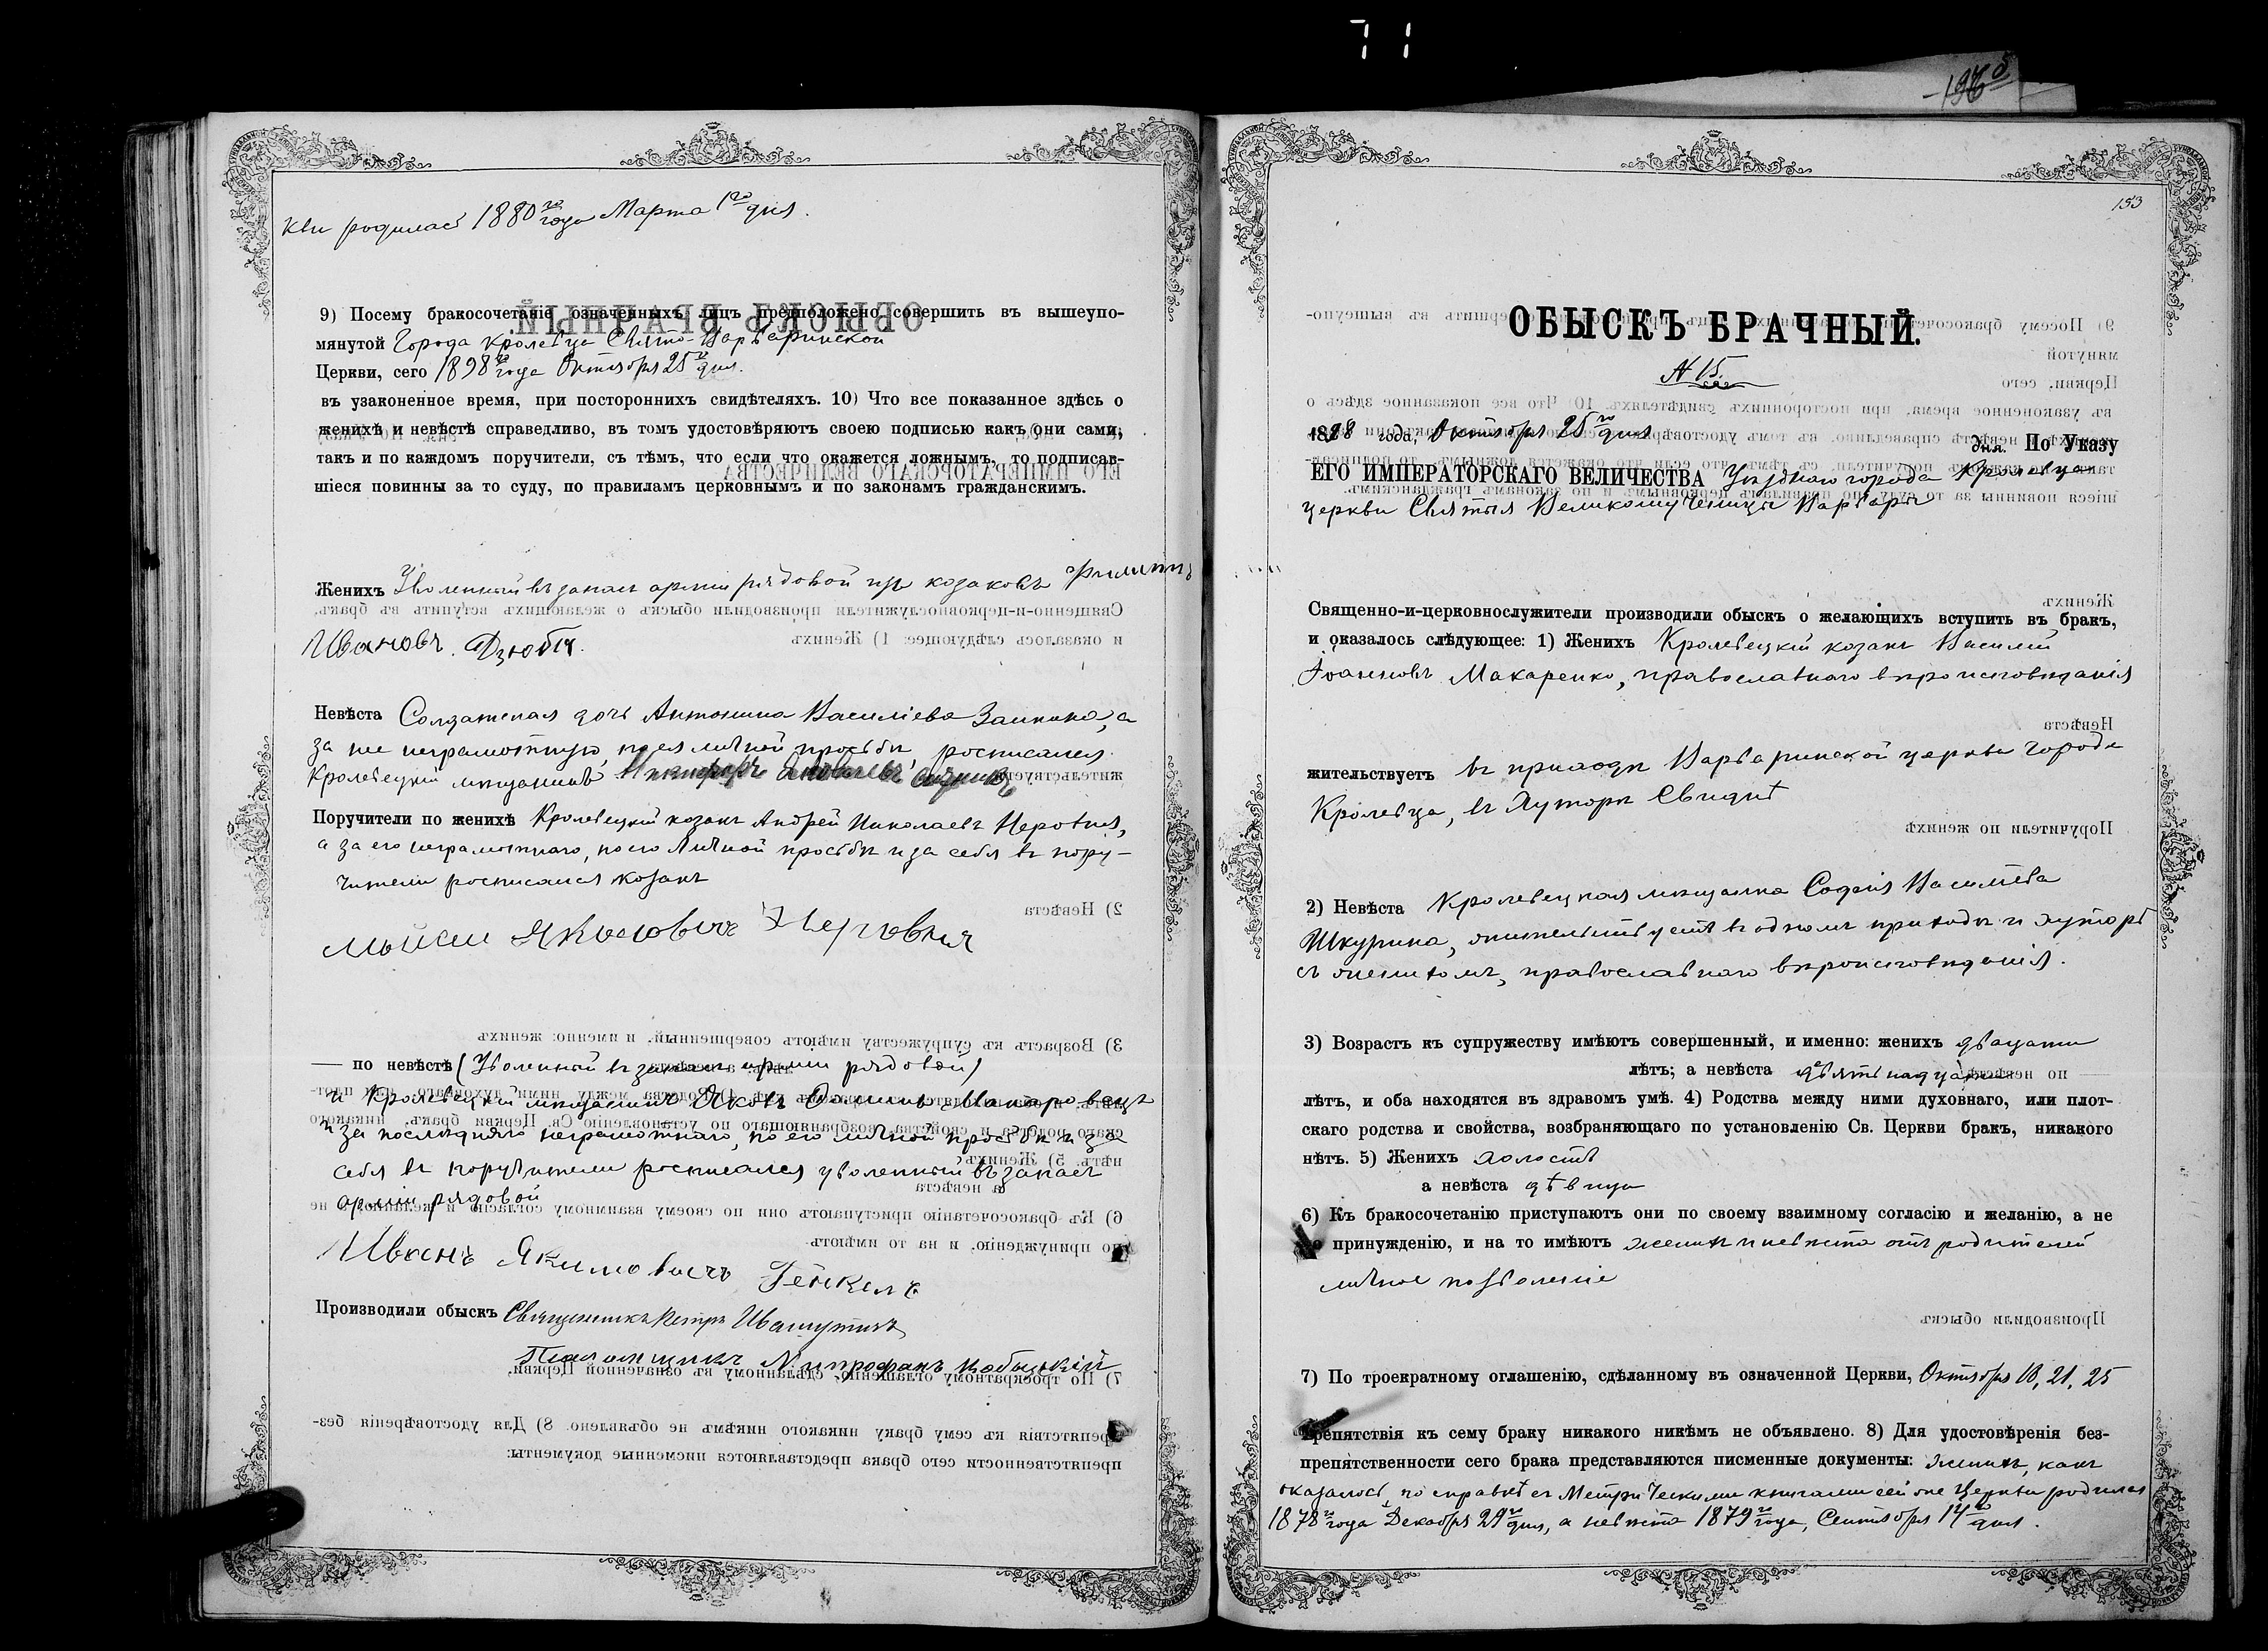 71
193
кви родилась 1880го года Марта 1го дня.
9) Посему бракосочетаніе означенныхъ лицъ предположено совершить въ вышеупо-
мянутой Города Кролевца Свято-Варваринской
Церкви, сего 1898го года Октября 25го дня.
въ узаконенное время, при постороннихъ свидѣтеляхъ. 10) Что все показанное здѣсь о
женихѣ и невѣстѣ справедливо, въ томъ удостовѣряютъ своею подписью какъ они сами,
такъ и по каждомъ поручители, съ тѣмъ, что если что окажется ложнымъ, то подписав-
шіеся повинны за то суду, по правиламъ церковнымъ и по законамъ гражданскимъ.
Женихъ Уволенный въ запасъ арміи рядовой изъ козаковъ Филиппъ
Ивановъ Дзюба.
Невѣста Солдатская дочь Антонина Василіева Заикина, а
за нее неграмотную, по ея личной просьбѣ, росписался
Кролевецкій мѣщанинъ
Поручители по женихѣ Кролевецкій козакъ Андрей Николаевъ Неровня,
а за его неграмотнаго, по его личной просьбѣ и за себя въ пору-
чители росписался козакъ
Мойсей Яковович Неровня
— по невѣстѣ (Уволенный въ запасъ арміи рядовой)
и Кролевецкій мѣщанинъ Яковъ
за послѣдняго неграмотнаго, по его личной просьбѣ и за
себя въ поручители росписался уволенный въ запасъ
арміи рядовой
Иванъ Якимовичъ
Производили обыскъ Священникъ Петръ Ивашутичъ
Псаломщикъ Митрофанъ
ОБЫСКЪ БРАЧНЫЙ.
N 15.
1898 года, Октября 25го дня
дня. По Указу
ЕГО ИМПЕРАТОРСКАГО ВЕЛИЧЕСТВА Уѣзднаго города Кролевца
церкви Святыя Великомученицы Варвары
Священно-и-церковнослужители производили обыскъ о желающихъ вступить въ бракъ,
и оказалось слѣдующее: 1) Женихъ Кролевецкій козакъ Василій
Іоанновъ Макаренко, православнаго вѣроисповѣданія
жительствуетъ въ приходѣ Варваринской церкви города
Кролевца, въ хуторѣ Свидѣ
2) Невѣста Кролевецкая мѣщанка Софія Василіева
Шкурина, жительствуетъ въ одномъ приходѣ и хуторѣ
съ женихомъ, православнаго вѣроисповѣданія.
3) Возрастъ къ супружеству имѣютъ совершенный, и именно: женихъ двацати
лѣтъ; а невѣста девятнадцати
лѣтъ, и оба находятся въ здравомъ умѣ. 4) Родства между ними духовнаго, или плот-
скаго родства и свойства, возбраняющаго по установленію Св. Церкви бракъ, никакого
нѣтъ. 5) Женихъ холостъ
а невѣста дѣвица
6) Къ бракосочетанію приступаютъ они по своему взаимному согласію и желанію, а не
по принужденію, и на то имѣютъ женихъ и невѣста отъ родителей
личное позволеніе
7) По троекратному оглашенію, сдѣланному въ означенной Церкви, Октября 18, 21, 25
препятствія къ сему браку никакого никѣмъ не объявлено. 8) Для удостовѣренія без-
препятственности сего брака представляются писменные документы: женихъ, какъ
оказалось, по справкѣ съ Метрическими книгами сей же Церкви родился
1878го года Декабря 29го дня, а невѣста 1879го года, Сентября 14го дня.